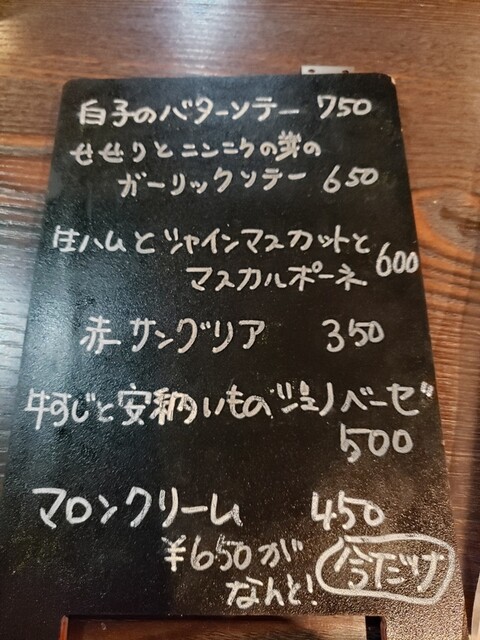 白子のバターソテー 750
せせりとニンニクの芽の
ガーリックソテー 650
生ハムとシャインマスカットと
マスカルポーネ 600
赤サングリア 350
牛すじと安納いものジェノベーゼ
500
マロンクリーム 450
¥650が 今だけ
なんと!